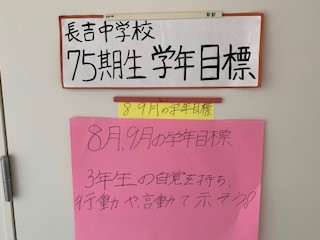 長吉中学校
75期生 学年目標
8 9月の学年目標
8月、9月の学年目標
3年生の自覚を持ち、
行動や言動で示そう!